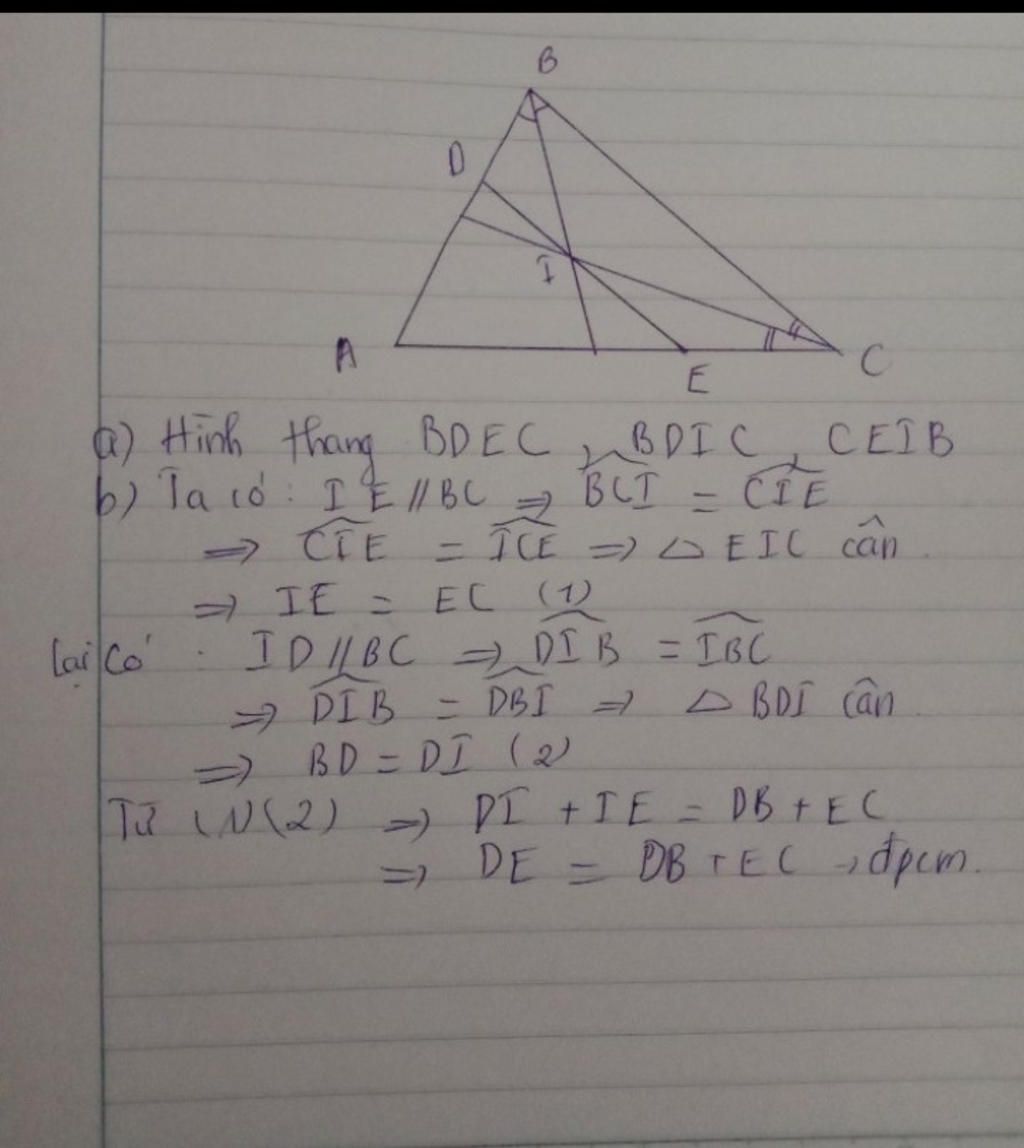 B
D
I
A
E
C
a) Hình thang BDEC, BDIC, CEIB
b) Ta có: IE // BC => \widehat{BCI} = \widehat{CIE}
=> \widehat{CIE} = \widehat{ICE} => △ EIC cân.
=> IE = EC (1)
Lại có: ID // BC => \widehat{DIB} = \widehat{IBC}
=> \widehat{DIB} = \widehat{DBI} => △ BDI cân.
=> BD = DI (2)
Từ (1)(2) => DI + IE = DB + EC
=> DE = DB + EC → đpcm.